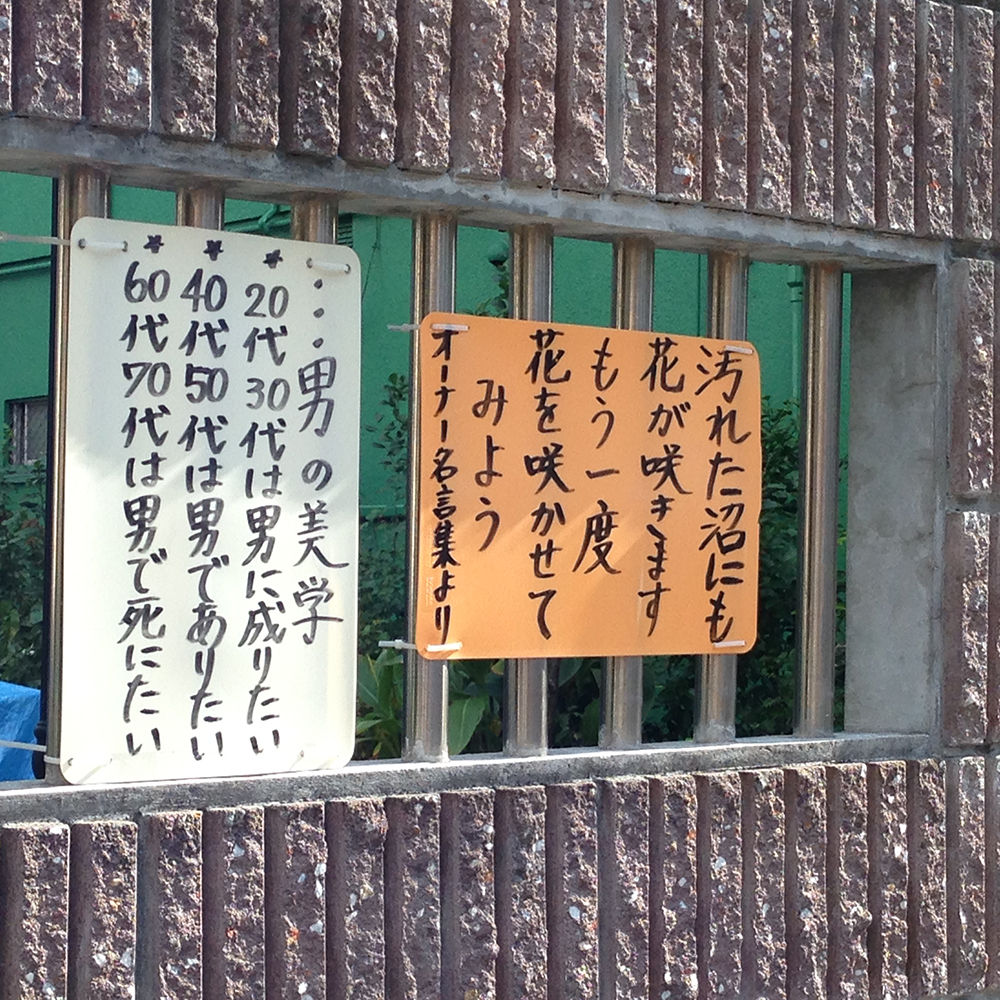 汚れた沼にも
花が咲きます
もう一度
花を咲かせて
みよう
オーナー名言集より
・・・男の美学
＊20代30代は男に成りたい
＊40代50代は男でありたい
＊60代70代は男で死にたい